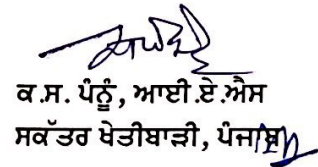 ਕ.ਸ. ਪੰਨੂੰ, ਆਈ.ਏ.ਐਸ
ਸਕੱਤਰ ਖੇਤੀਬਾੜੀ, ਪੰਜਾਬ